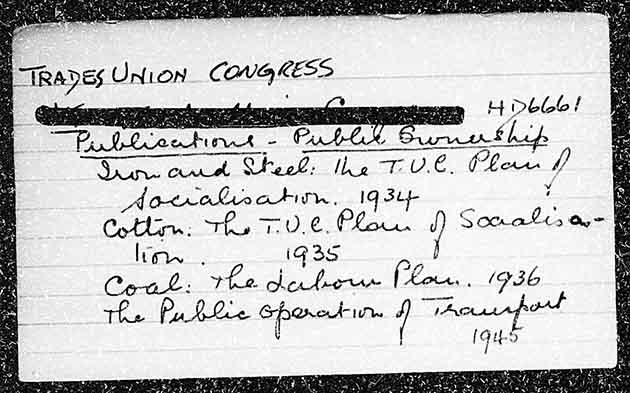 TRADES UNION CONGRESS
HD6661
Publications - Public Ownership
Iron and Steel: the T.U.C. Plan of
Socialisation. 1934
Cotton: The T.U.C. Plan of Socialisa-
tion. 1935
Coal: The Labour Plan. 1936
The Public Operation of Transport
1945